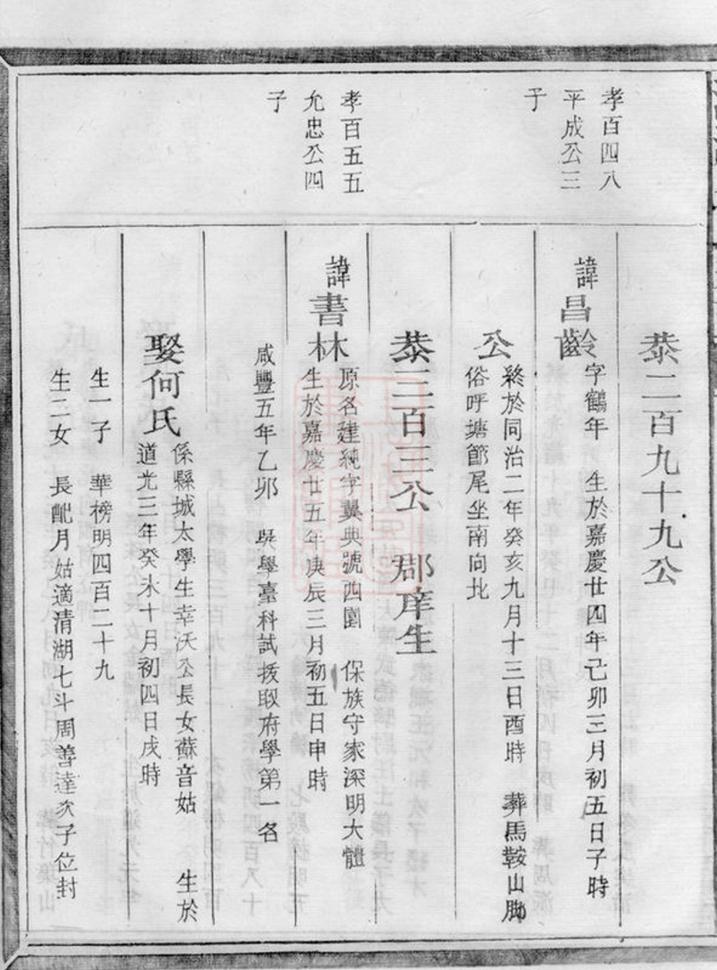 孝百四八
平成公三
子
恭二百九十九公
諱昌齡 字鶴年 生於嘉慶廿四年己卯三月初五日子時
終於同治二年癸亥九月十三日酉時 葬馬鞍山脚
公 俗呼塘節尾坐南向北
孝百五五
允忠公四
子
恭三百三公 郡庠生
諱書林 原名建純字翼典號西園 保族守家深明大體
生於嘉慶廿五年庚辰三月初五日申時
咸豐五年乙卯 吳學臺科試拔取府學第一名
娶何氏 係縣城太學生幸沃公長女蘇音姑 生於
道光三年癸未十月初四日戌時
生一子 華榜明四百二十九
生二女 長毗月姑適清湖七斗周善達次子位封